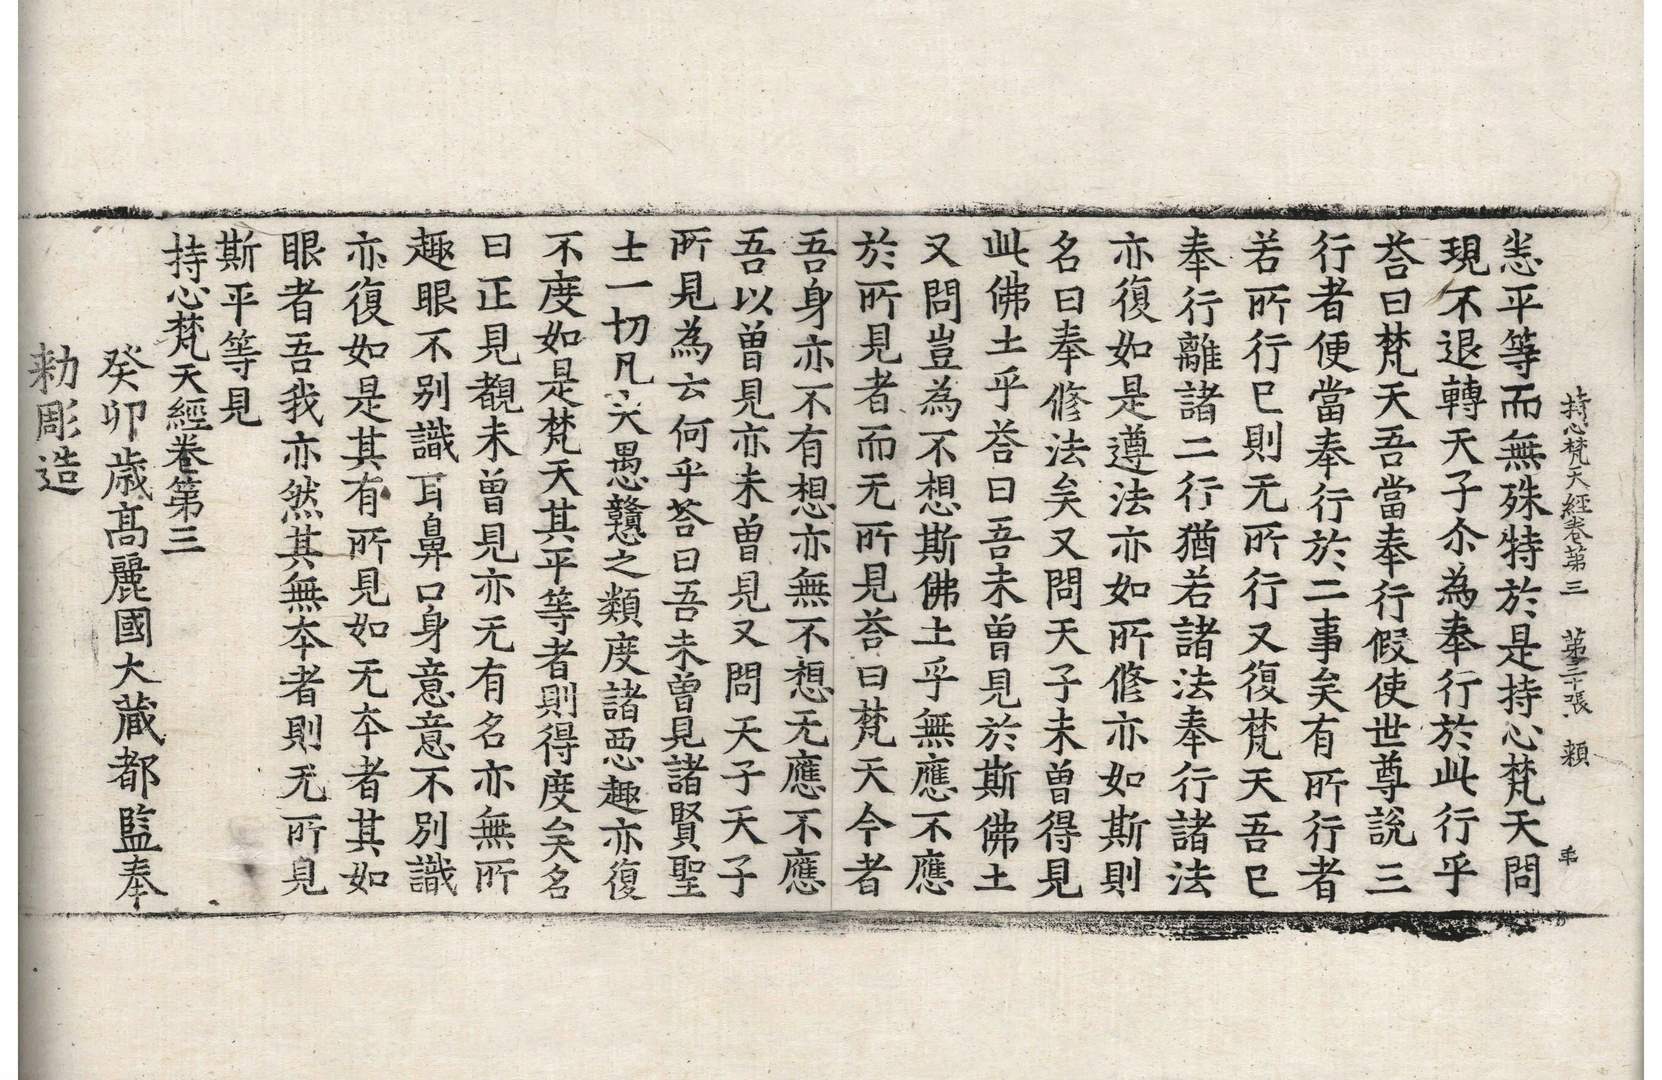 持心梵天經卷第三 第三十張 賴
恙平等而無殊特於是持心梵天問
現不退轉天子尒為奉行於此行乎
荅曰梵天吾當奉行假使世尊說三
行者便當奉行於二事矣有所行者
若所行已則无所行又復梵天吾已
奉行離諸二行猶若諸法奉行諸法
亦復如是遵法亦如所修亦如斯則
名曰奉修法矣又問天子未曾得見
此佛土乎荅曰吾未曾見於斯佛土
又問豈為不想斯佛土乎無應不應
於所見者而无所見荅曰梵天今者
吾身亦不有想亦無不想无應不應
吾以曾見亦未曾見又問天子天子
所見為云何乎荅曰吾未曾見諸賢聖
士一切凡夫愚戇之類度諸惡趣亦復
不度如是梵天其平等者則得度矣名
曰正見覩未曾見亦无有名亦無所
趣眼不別識耳鼻口身意意不別識
亦復如是其有所見如无夲者其如
眼者吾我亦然其無夲者則无所見
斯平等見
持心梵天經卷第三
癸卯歲高麗國大藏都監奉
勑彫造